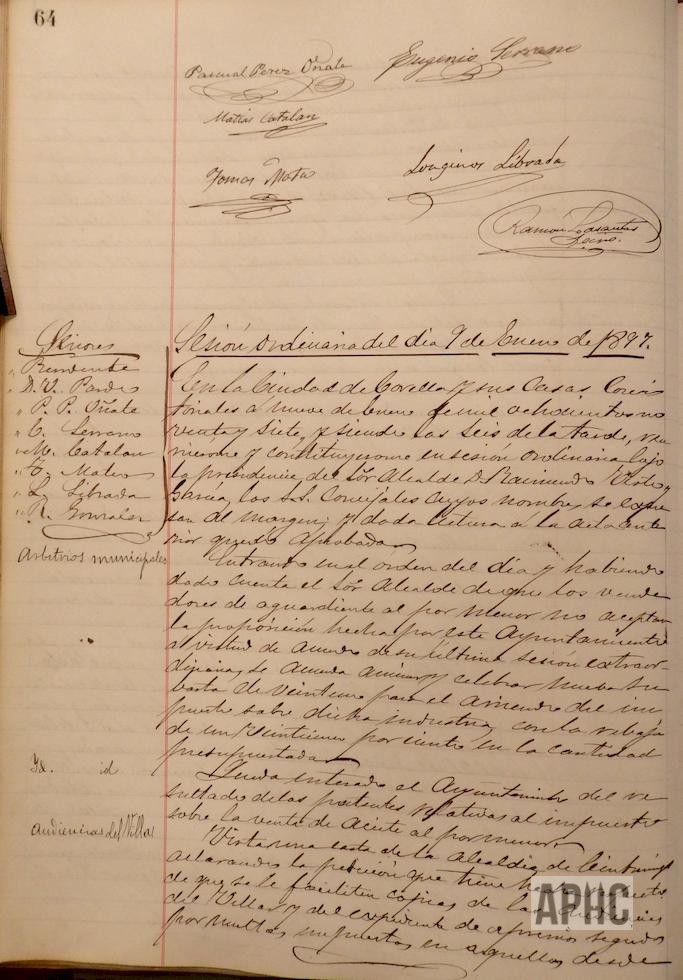 64
Pascual Perez Oñate
Eugenio Serrano
Matías Catalan
Tomas Mateo
Longinos Librada
Ramon Lasantas
Srio.
Señores
Presidente
D. V. Pardo
" P. P. Oñate
" E. Serrano
" M. Catalan
" T. Mateo
" L. Librada
" R. Gonzalez
Sesión ordinaria del dia 9 de Enero de 1897.
En la Ciudad de Corella y sus Casas Consis
toriales a nueve de Enero de mil ochocientos no
venta y siete, y siendo las seis de la tarde, reu
nieronse y constituyeronse en sesion ordinaria bajo
la presidencia del Sor Alcalde D. Raimundo
los S.S. Concejales cuyos nombres se expre
san al margen; y dada lectura a la acta ante
rior quedó aprobada.
Arbitrios municipales
Entrando en el orden del dia y habiendo
dado cuenta el Sor Alcalde de que los vende
dores de aguardiente al por menor no aceptan
la proposición hecha por este Ayuntamiento
a virtud de acuerdo de su última sesion extraor
dinaria, se acuerda anunciar y celebrar nueva su
basta de veintena para el arriendo del im
puesto sobre dicha industria, con la rebaja
de un veinticinco por ciento en la cantidad
presupuestada.
Id. id
Queda enterado el Ayuntamiento del re
sultado de las patentes relativas al impuesto
sobre la venta de Aceite al por menor.
Audiencias del Villar
Vista una carta de la Alcaldía de Cintruénigo
aclarando la petición que tiene
de que se le faciliten copias de las
del Villar y del expediente de apremios seguidos
por multas impuestas en aquellas desde
APHC